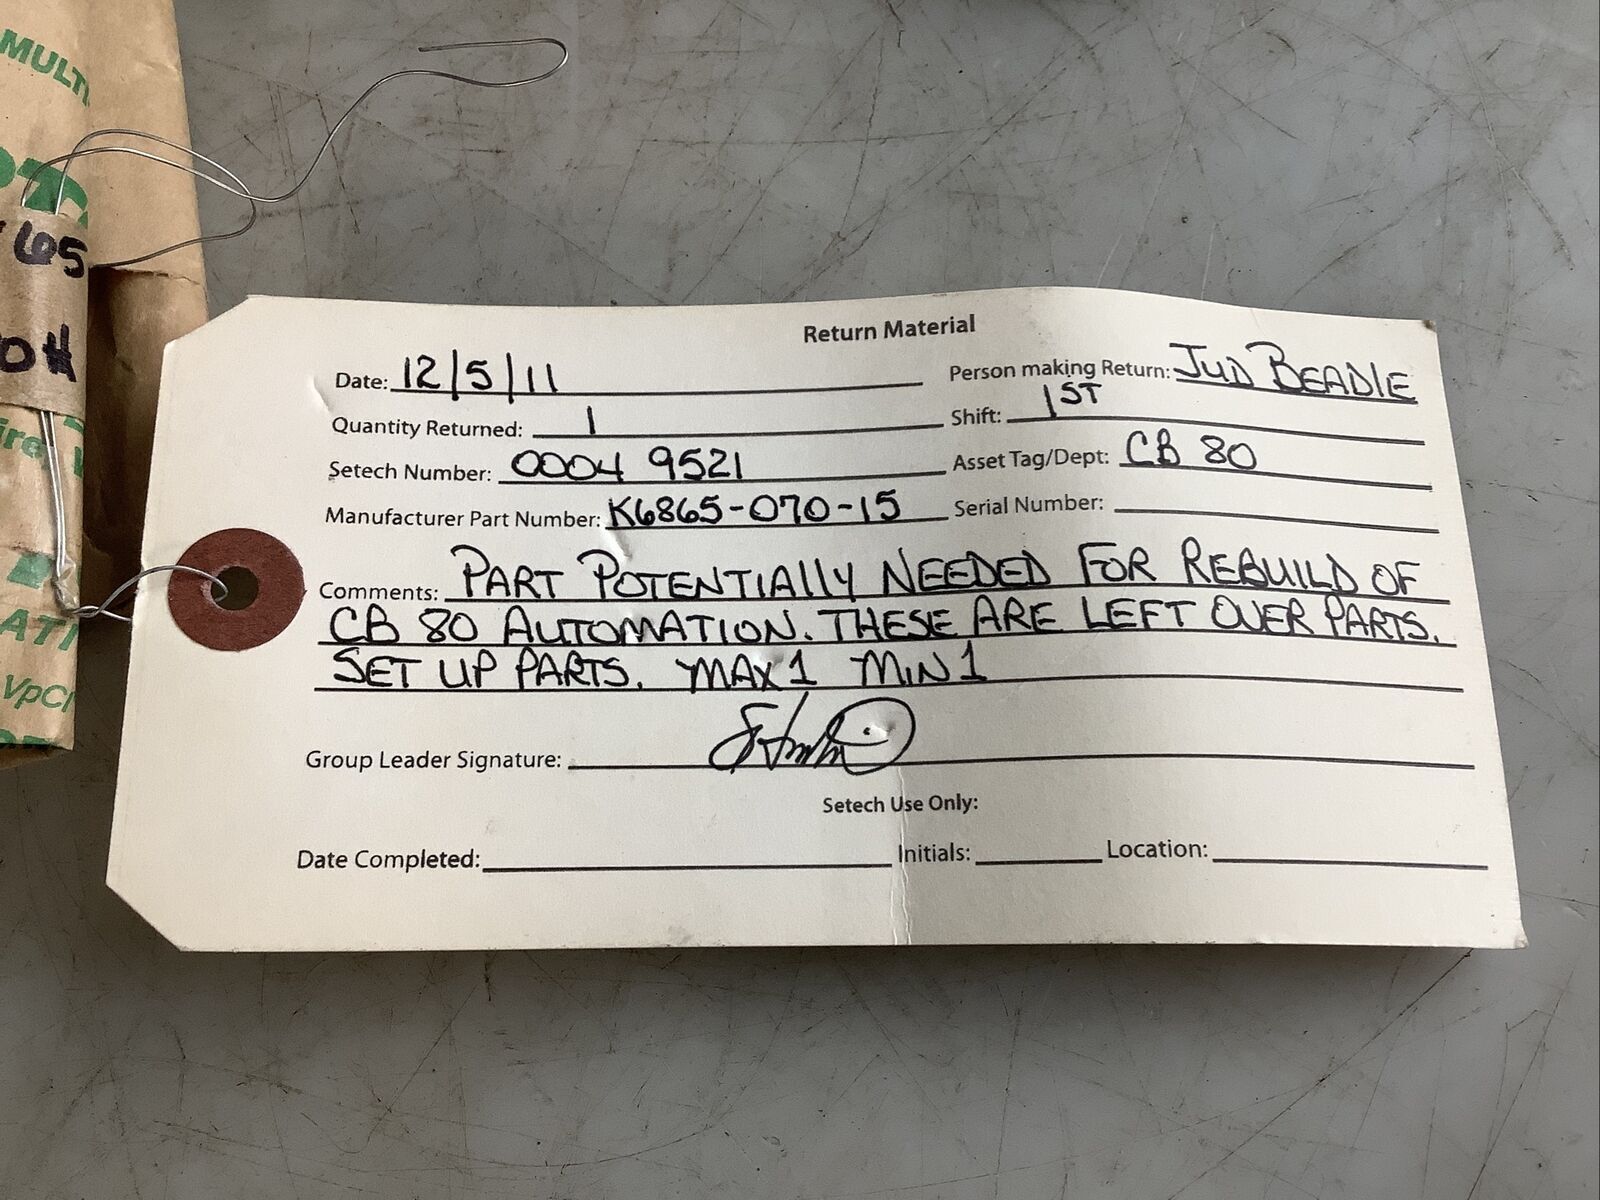 MULTI
65
O#
VpCI
Return Material
Date: 12/5/11 Person making Return: JUD BEADLE
Quantity Returned: 1 Shift: 1ST
Setech Number: 0004 9521 Asset Tag/Dept: CB 80
Manufacturer Part Number: K6865-070-15 Serial Number:
Comments: PART POTENTIALLY NEEDED FOR REBUILD OF
CB 80 AUTOMATION. THESE ARE LEFT OVER PARTS.
SET UP PARTS. MAX 1 MIN 1
Group Leader Signature:
Setech Use Only:
Date Completed: Initials: Location: